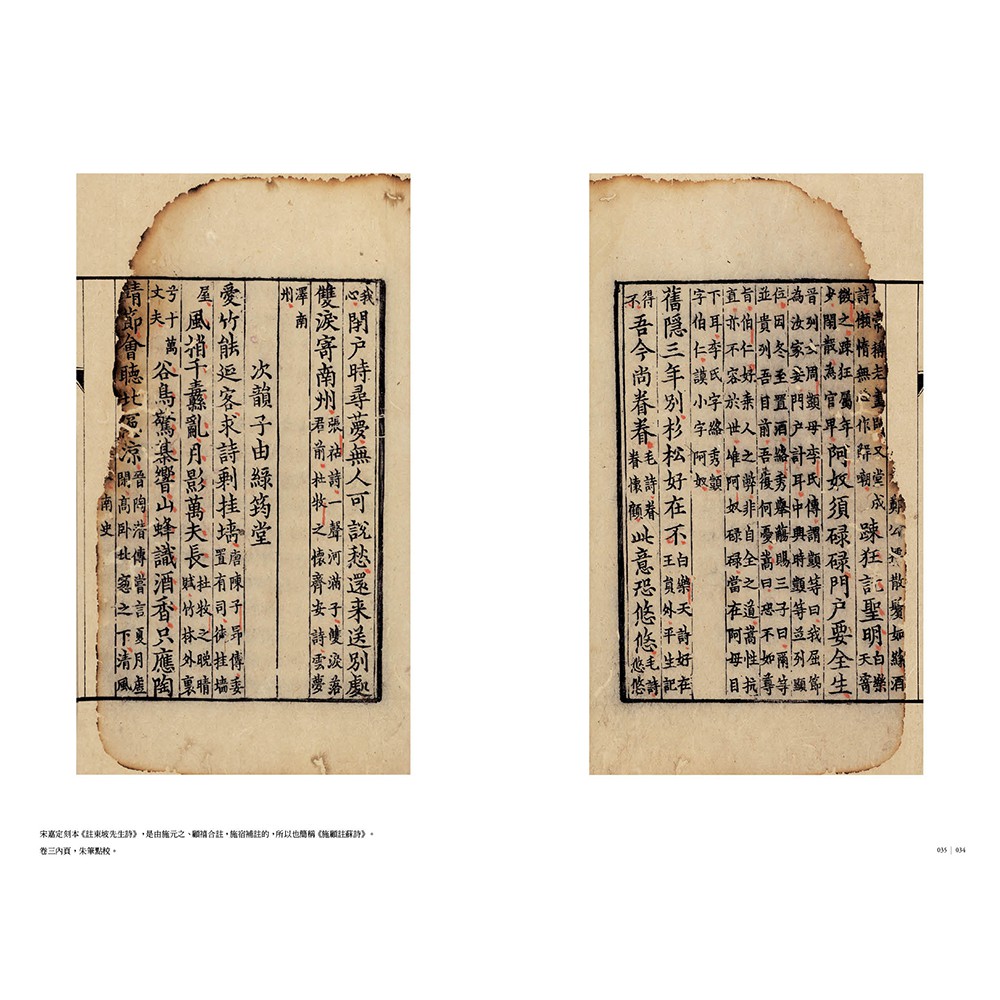 常稱老畫師又堂成
散鬢如絲酒
詩懶惰無心作解嘲踈狂託聖明白樂天寄
微之踈狂屬年少閑散為官卑阿奴須碌碌門户要全生
晉列女周顗母李氏傳謂顗等曰我屈節
為汝家妾門户計耳中興時顗等並列顯
位因冬至置酒絡秀舉觴賜三子曰爾等
並貴列吾目前吾復何憂嵩曰恐不如尊
旨伯仁好乘人之弊非自全之道嵩性抗
直亦不容於世唯阿奴碌碌當在阿母目
下耳李氏字絡秀顗
字伯仁謨小字阿奴
舊隱三年别杉松好在不白樂天詩好在王員外平生記
得不吾今尚眷眷毛詩眷眷懷顧此意恐悠悠毛詩悠悠
我心閉户時尋夢無人可說愁還来送别處
雙淚寄南州張祜詩一聲河滿子雙淚落君前杜牧之懷齊安詩雲夢
澤南州
次韻子由綠筠堂
愛竹能延客求詩剩挂墻唐陳子昂傳委置有司徒挂墻
屋風梢千纛亂月影萬夫長杜牧之晚晴賦竹林外裹
兮十萬丈夫谷鳥驚棊響山蜂識酒香只應陶
靖節會聽北窻涼晉陶潛傳嘗言夏月虚閒高卧北窻之下清風
南史
宋嘉定刻本《註東坡先生詩》，是由施元之、顧禧合註，施宿補註的，所以也簡稱《施顧註蘇詩》。
卷三內頁，朱筆點校。
035 | 034